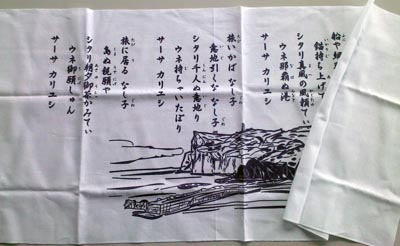 船や
錨持ち上げ
シタリ真風の風頼てぃ
ウネ那覇ぬ港
サーサ カリユシ
旅いかば なし子
意地引くな なし子
シタリ千人ぬ意地
ウネ持ちゃいたぼり
サーサ カリユシ
旅に居る なし子
島ぬ親願や
シタリ朝夕御茶かみてぃ
ウネ御願しゅん
サーサ カリユシ